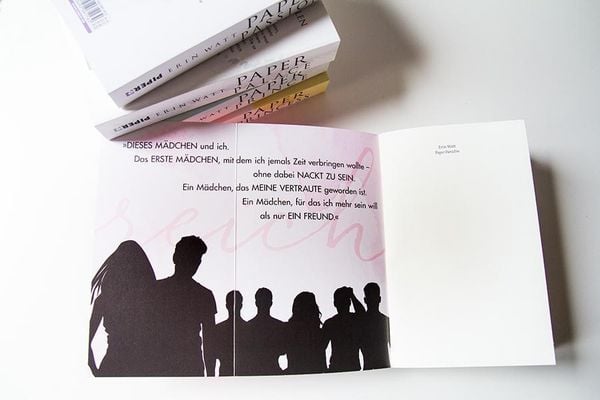 PAPER
PASSION
ERIN WATT
PIPER
PAPER
PALACE
ERIN WATT
PIPER
PAPER
PRINCE
ERIN WATT
PAPER
PRINCESS
»DIESES MÄDCHEN und ich.
Das ERSTE MÄDCHEN, mit dem ich jemals Zeit verbringen wollte –
ohne dabei NACKT ZU SEIN.
Ein Mädchen, das MEINE VERTRAUTE geworden ist.
Ein Mädchen, für das ich mehr sein will
als nur EIN FREUND.«
reich
Erin Watt
Paper Paradise